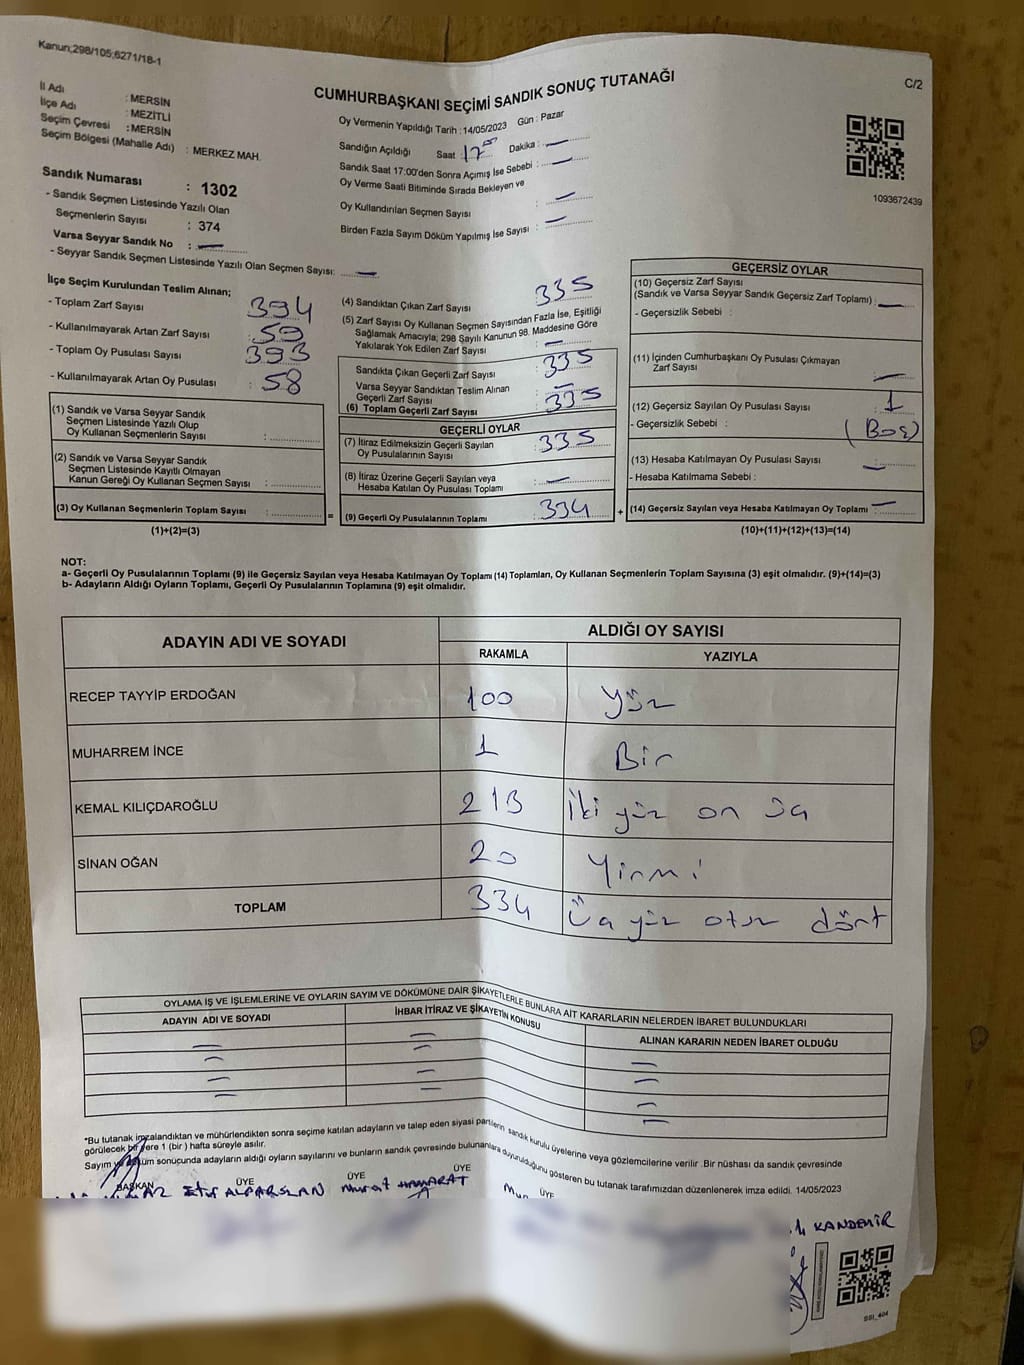 Kanun;298/105;6271/18-1
C/2
CUMHURBAŞKANI SEÇİMİ SANDIK SONUÇ TUTANAĞI
İl Adı : MERSİN
İlçe Adı : MEZİTLİ
Seçim Çevresi : MERSİN
Seçim Bölgesi (Mahalle Adı) : MERKEZ MAH.
Sandık Numarası : 1302
- Sandık Seçmen Listesinde Yazılı Olan
Seçmenlerin Sayısı : 374
Varsa Seyyar Sandık No : —
- Seyyar Sandık Seçmen Listesinde Yazılı Olan Seçmen Sayısı: —
Oy Vermenin Yapıldığı Tarih : 14/05/2023 Gün : Pazar
Sandığın Açıldığı Saat : 17 00 Dakika : —
Sandık Saat 17:00'den Sonra Açımış İse Sebebi : —
Oy Verme Saati Bitiminde Sırada Bekleyen ve
Oy Kullandırılan Seçmen Sayısı : —
Birden Fazla Sayım Döküm Yapılmış İse Sayısı : —
1093672439
İlçe Seçim Kurulundan Teslim Alınan;
- Toplam Zarf Sayısı : 394
- Kullanılmayarak Artan Zarf Sayısı : 59
- Toplam Oy Pusulası Sayısı : 393
- Kullanılmayarak Artan Oy Pusulası : 58
(1) Sandık ve Varsa Seyyar Sandık
Seçmen Listesinde Yazılı Olup
Oy Kullanan Seçmenlerin Sayısı :
(2) Sandık ve Varsa Seyyar Sandık
Seçmen Listesinde Kayıtlı Olmayan
Kanun Gereği Oy Kullanan Seçmen Sayısı :
(3) Oy Kullanan Seçmenlerin Toplam Sayısı :
(1)+(2)=(3)
=
(4) Sandıktan Çıkan Zarf Sayısı : 335
(5) Zarf Sayısı Oy Kullanan Seçmen Sayısından Fazla İse, Eşitliği
Sağlamak Amacıyla; 298 Sayılı Kanunun 98. Maddesine Göre
Yakılarak Yok Edilen Zarf Sayısı : —
Sandıkta Çıkan Geçerli Zarf Sayısı : 335
Varsa Seyyar Sandıktan Teslim Alınan
Geçerli Zarf Sayısı : —
(6) Toplam Geçerli Zarf Sayısı : 335
GEÇERLİ OYLAR
(7) İtiraz Edilmeksizin Geçerli Sayılan
Oy Pusulalarının Sayısı : 335
(8) İtiraz Üzerine Geçerli Sayılan veya
Hesaba Katılan Oy Pusulası Toplamı : —
(9) Geçerli Oy Pusulalarının Toplamı : 334
+
GEÇERSİZ OYLAR
(10) Geçersiz Zarf Sayısı
(Sandık ve Varsa Seyyar Sandık Geçersiz Zarf Toplamı) : —
- Geçersizlik Sebebi :
(11) İçinden Cumhurbaşkanı Oy Pusulası Çıkmayan
Zarf Sayısı : —
(12) Geçersiz Sayılan Oy Pusulası Sayısı : 1
- Geçersizlik Sebebi : (Boş)
(13) Hesaba Katılmayan Oy Pusulası Sayısı : —
- Hesaba Katılmama Sebebi :
(14) Geçersiz Sayılan veya Hesaba Katılmayan Oy Toplamı : —
(10)+(11)+(12)+(13)=(14)
NOT:
a- Geçerli Oy Pusulalarının Toplamı (9) ile Geçersiz Sayılan veya Hesaba Katılmayan Oy Toplamı (14) Toplamları, Oy Kullanan Seçmenlerin Toplam Sayısına (3) eşit olmalıdır. (9)+(14)=(3)
b- Adayların Aldığı Oyların Toplamı, Geçerli Oy Pusulalarının Toplamına (9) eşit olmalıdır.
ADAYIN ADI VE SOYADI ALDIĞI OY SAYISI
RAKAMLA YAZIYLA
RECEP TAYYİP ERDOĞAN 100 Yüz
MUHARREM İNCE 1 Bir
KEMAL KILIÇDAROĞLU 213 İki yüz on üç
SİNAN OĞAN 20 Yirmi
TOPLAM 334 Üç yüz otuz dört
OYLAMA İŞ VE İŞLEMLERİNE VE OYLARIN SAYIM VE DÖKÜMÜNE DAİR ŞİKAYETLERLE BUNLARA AİT KARARLARIN NELERDEN İBARET BULUNDUKLARI
ADAYIN ADI VE SOYADI İHBAR İTİRAZ VE ŞİKAYETİN KONUSU ALINAN KARARIN NEDEN İBARET OLDUĞU
*Bu tutanak imzalandıktan ve mühürlendikten sonra seçime katılan adayların ve talep eden siyasi partilerin sandık kurulu üyelerine veya gözlemcilerine verilir .Bir nüshası da sandık çevresinde
görülecek bir yere 1 (bir ) hafta süreyle asılır.
Sayım ve döküm sonucunda adayların aldığı oyların sayılarını ve bunların sandık çevresinde bulunanlara duyurulduğunu gösteren bu tutanak tarafımızdan düzenlenerek imza edildi. 14/05/2023
BAŞKAN ÜYE ÜYE ÜYE ÜYE
ALPARSLAN Murat HAMARAT
KANDEMİR
SSI_404